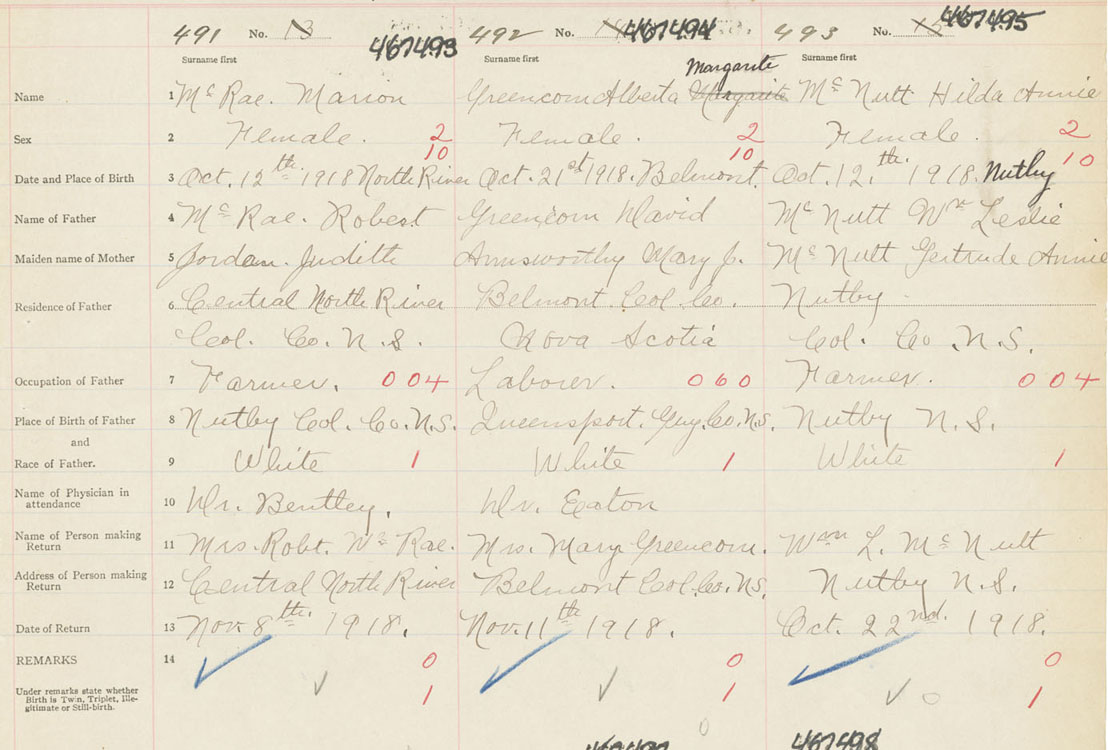 491 No. 13 467493 492 No. 467494 493 No. 15 467495
Surname first Surname first Surname first
Margarite
Name 1 Mc Rae. Marion Greencorn Alberta Margarite Mc Nutt Hilda Annie
Sex 2 Female. 2 Female. 2 Female. 2
10 10 10
Date and Place of Birth 3 Oct. 12th 1918 North River Oct. 21st 1918. Belmont. Oct. 12th. 1918. Nutby
Name of Father 4 Mc Rae. Robert Greencorn David Mc Nutt Wm Leslie
Maiden name of Mother 5 Jordan. Judith Ainsworthy Mary J. Mc Nutt Gertrude Annie
Residence of Father 6 Central North River Belmont. Col. Co. Nutby
Col. Co. N.S. Nova Scotia Col. Co. N.S.
Occupation of Father 7 Farmer. 004 Laborer. 060 Farmer. 004
Place of Birth of Father 8 Nutby Col. Co. N.S. Queensport. Guy. Co. N.S. Nutby N.S.
and
Race of Father. 9 White 1 White 1 White 1
Name of Physician in
attendance 10 Dr. Bentley. Dr. Eaton
Name of Person making
Return 11 Mrs. Robt. Mc Rae. Mrs. Mary Greencorn. Wm L. Mc Nutt
Address of Person making
Return 12 Central North River Belmont Col. Co. N.S. Nutby N.S.
Date of Return 13 Nov. 8th. 1918. Nov. 11th 1918. Oct. 22nd. 1918.
REMARKS 14 0 0 0
Under remarks state whether
Birth is Twin, Triplet, Ille-
gitimate or Still-birth. 1 1 1
467498